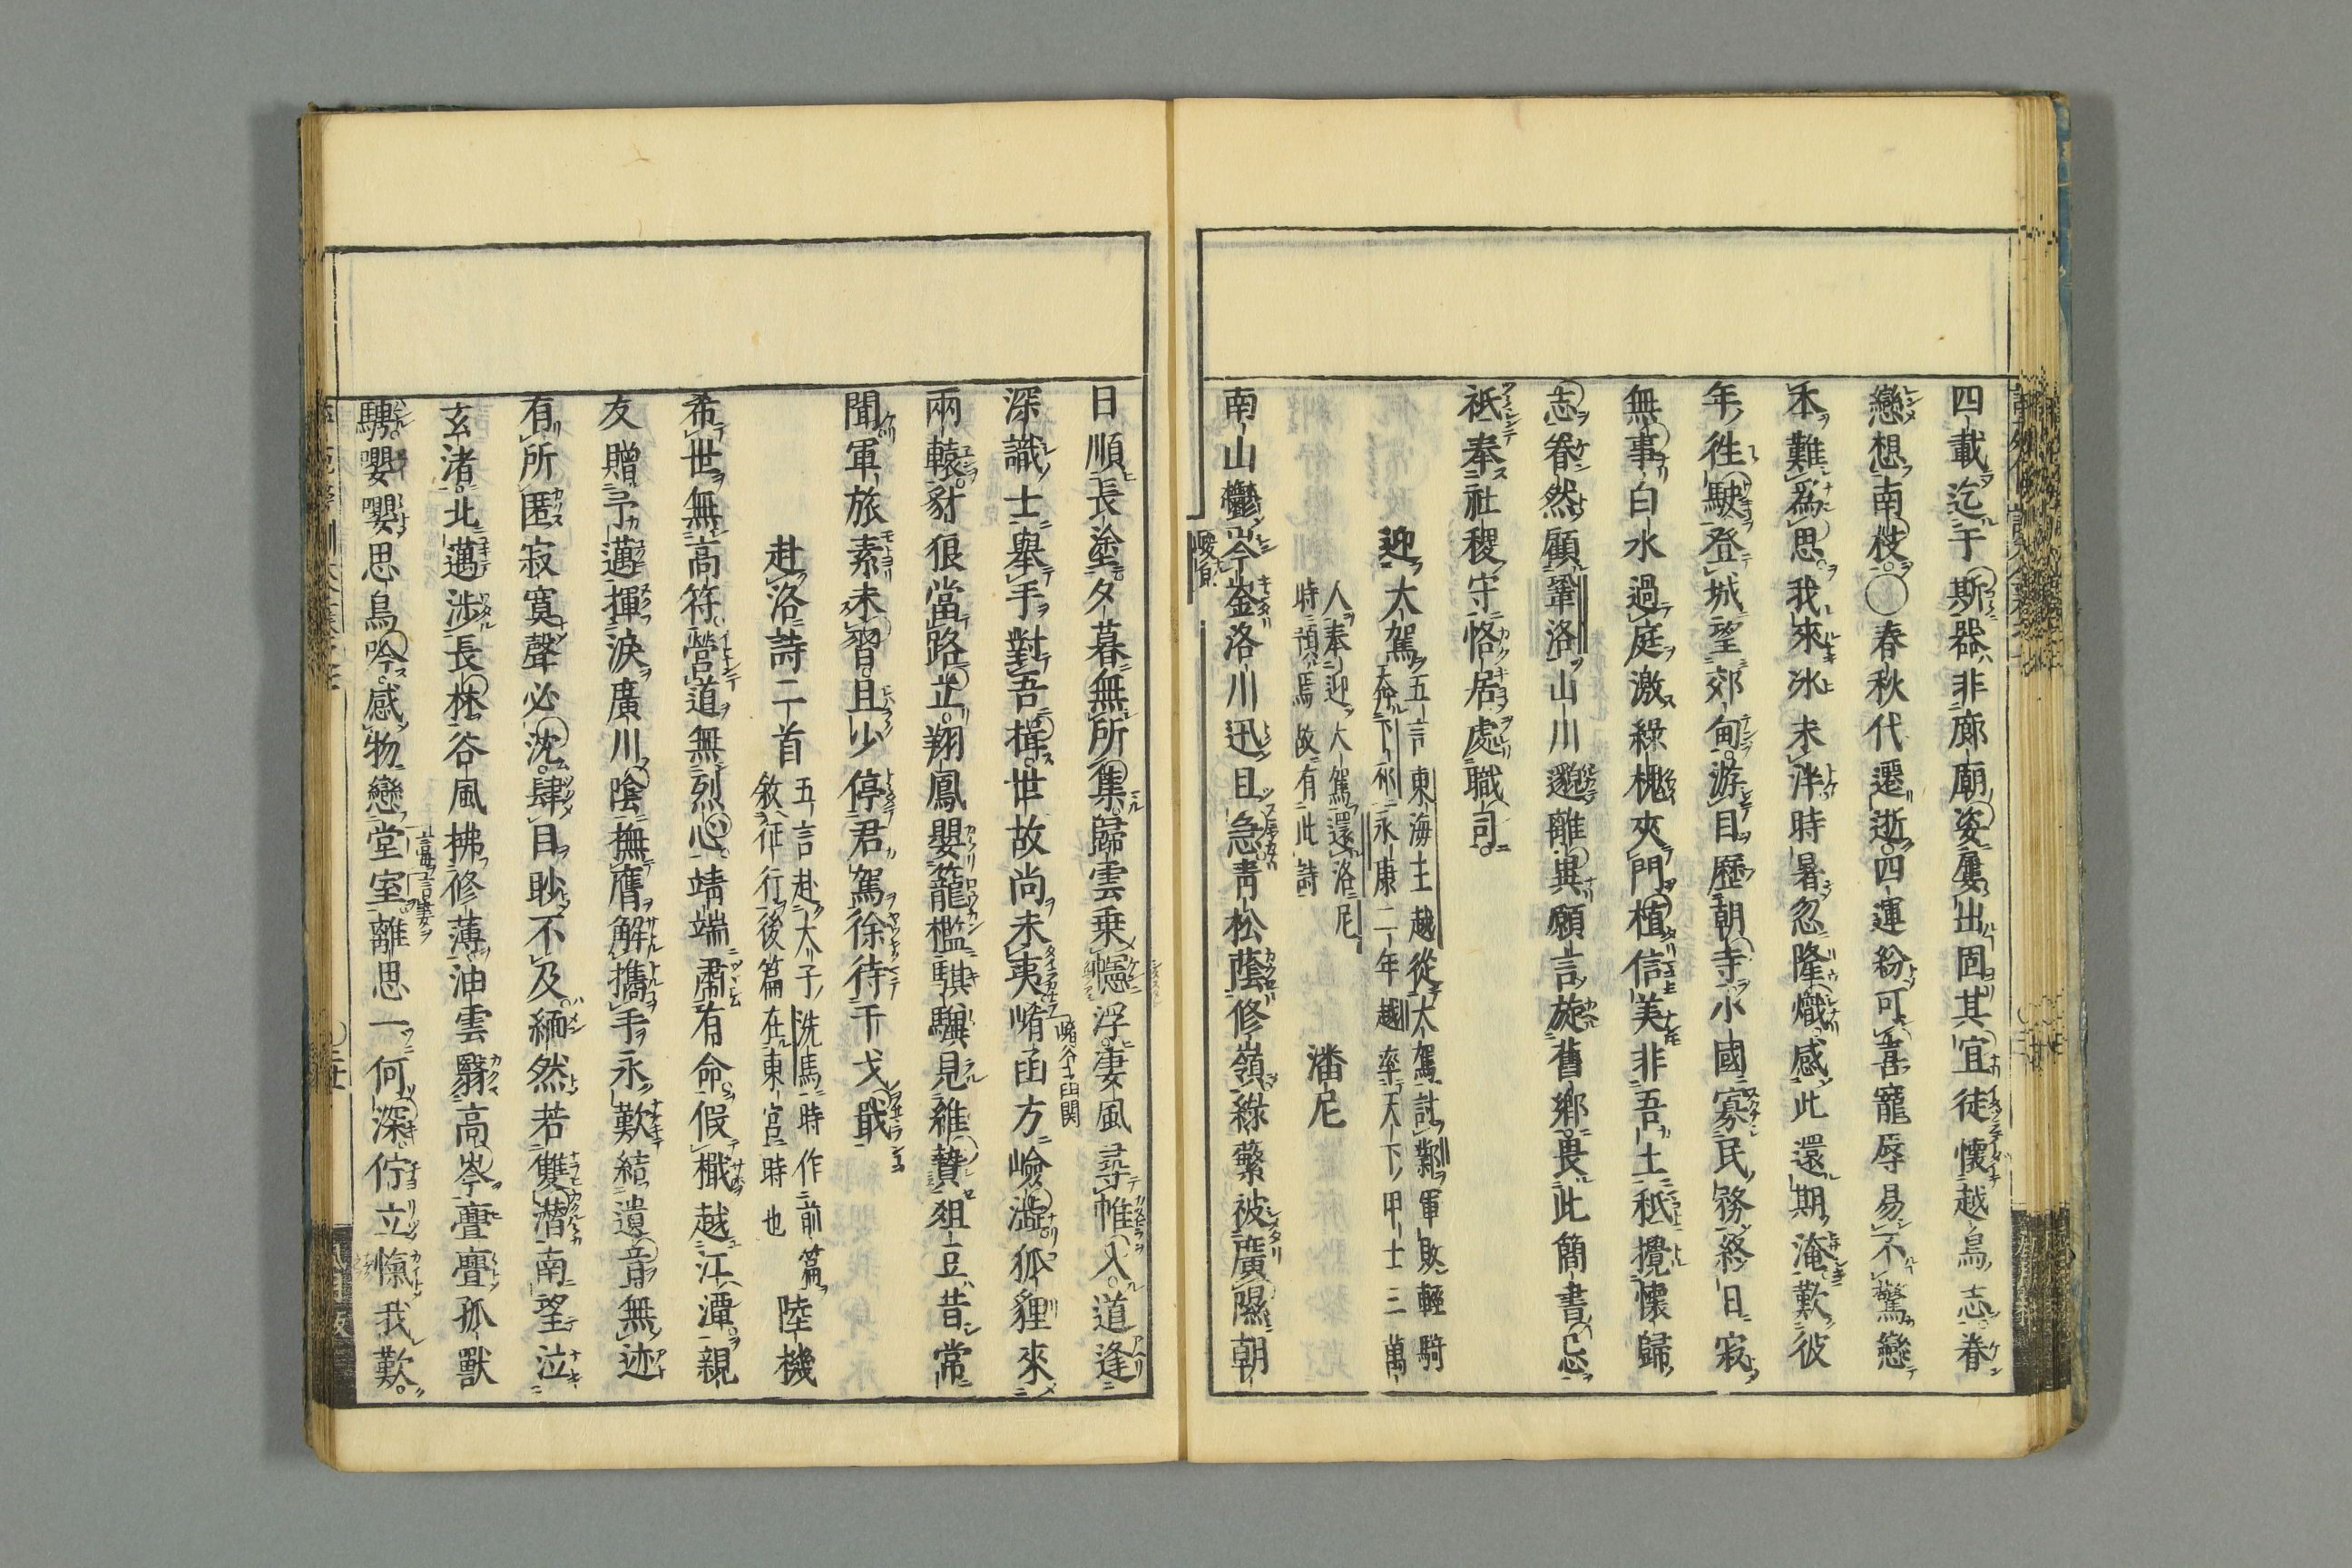 四載迄于斯器非廊廟姿屢出固其宜徒懷越鳥志眷
戀想南枝○春秋代遷逝四運紛可喜寵辱易不驚戀
本難為思我來冰未泮時暑忽隆熾感此還期淹歎彼
年往駛登城望郊甸游目歷朝寺小國寡民務終日寂
無事白水過庭激綠槐夾門植信美非吾土秖攪懷歸
志眷然顧鞏洛山川邈離異願言旋舊鄉畏此簡書忌
祇奉社稷守恪居處職司
迎大駕
五言東海王越從大駕討鄴軍敗輕騎
奔下邳永康二年越率天下甲士三萬
人奉迎大駕還洛尼
時預焉故有此詩
潘尼
南山鬱岑崟洛川迅且急青松蔭修嶺綠蘩被廣隰朝
日順長塗夕暮無所集歸雲乗幰浮凄風尋帷入道逢
深識士舉手對吾揖世故尚未夷崤函方嶮澁狐貍來
崤谷函関
兩轅豺狼當路立翔鳳嬰籠檻騏驥見維贄俎豆昔常
聞軍旅素未習且少停君駕徐待干戈戢
赴洛詩二首
五言赴太子洗馬時作前篇
敘征行後篇在東宮時也
陸機
希世無高符營道無烈心靖端肅有命假檝越江潭親
友贈予邁揮淚廣川陰撫膺解攜手永歎結遺音無迹
有所匿寂寞聲必沈肆目眇不及緬然若雙潛南望泣
玄渚北邁涉長林谷風拂修薄油雲翳高岑亹亹孤獸
騁嚶嚶思鳥吟感物戀堂室離思一何深佇立愾我歎